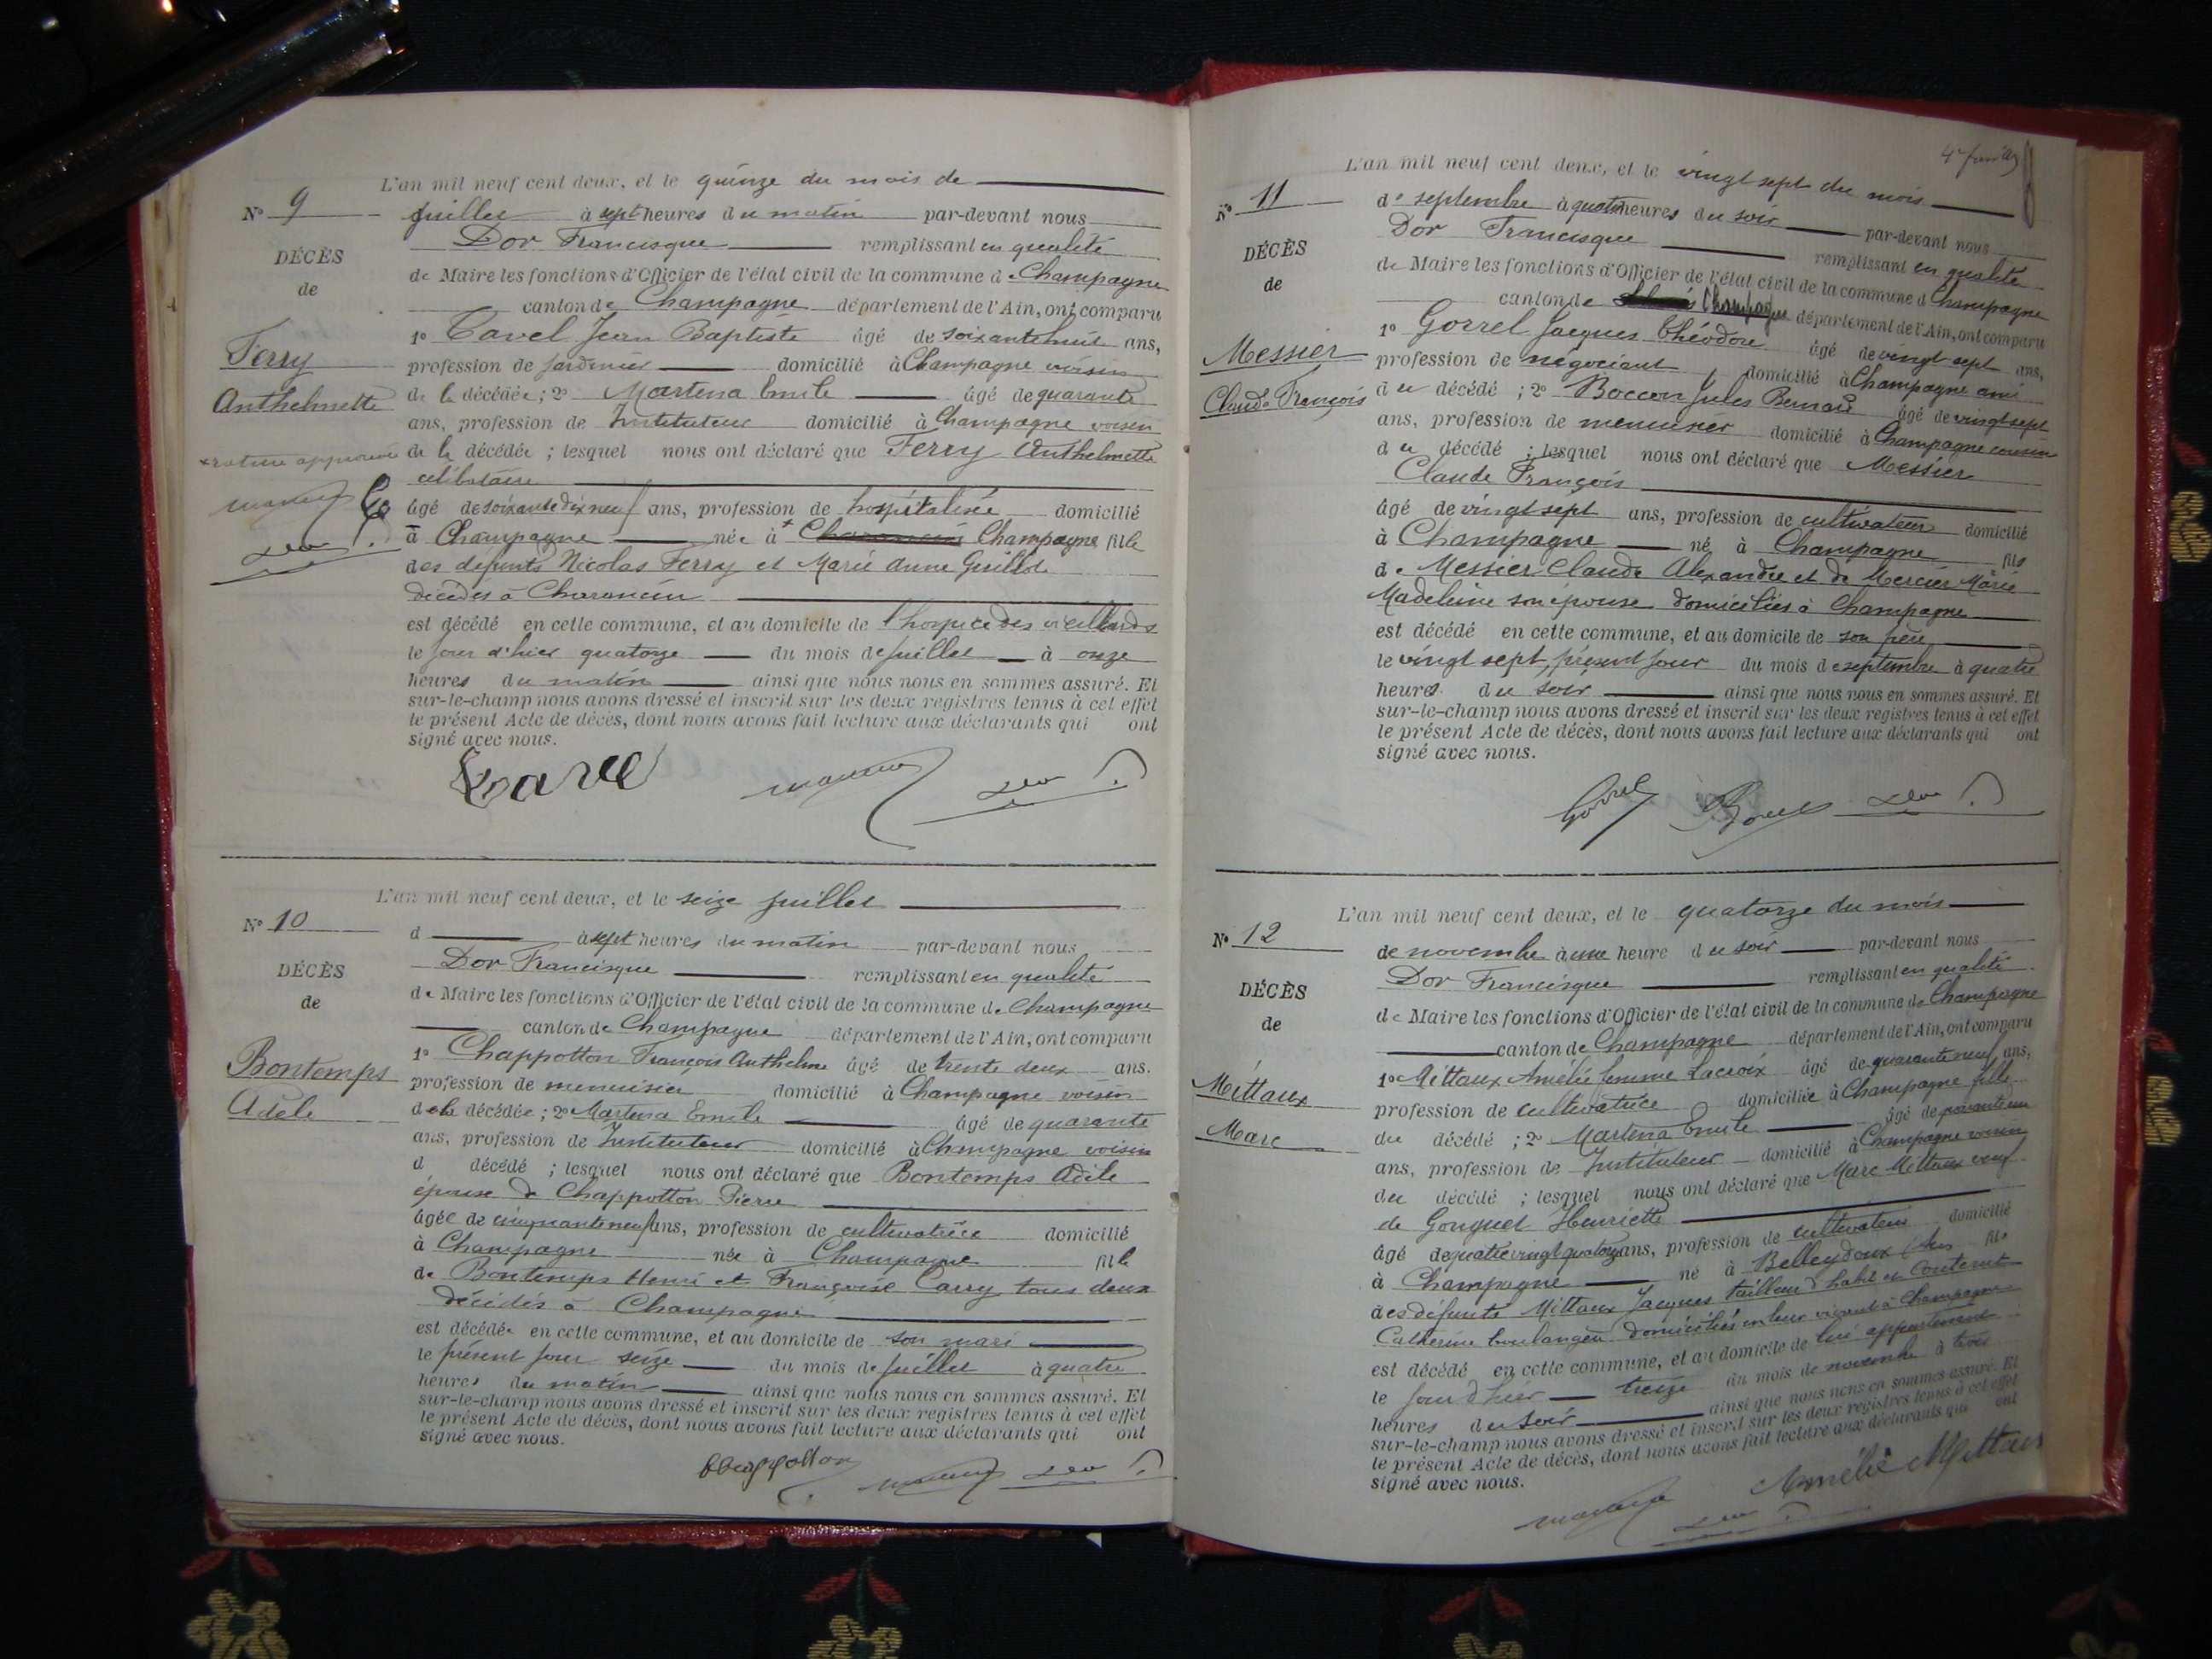 L'an mil neuf cent deux, et le quinze du mois de
N° 9
juillet à sept heures du matin par-devant nous
Dor Francisque remplissant en qualité
DÉCÈS
de Maire les fonctions d'Officier de l'état civil de la commune de Champagne
de
canton de Champagne département de l'Ain, ont comparu
1° Cavel Jean Baptiste âgé de soixante huit ans,
Ferry
profession de jardinier domicilié à Champagne voisin
Anthelmette
de la décédée ; 2° Martena Emile âgé de quarante
ans, profession de Instituteur domicilié à Champagne voisin
rature approuvée
de la décédée ; lesquel nous ont déclaré que Ferry Anthelmette
célibataire
âgé de soixante dix neuf ans, profession de hospitalisée domicilié
à Champagne née à Champagne fille
des défunts Nicolas Ferry et Marie Anne Guillot
décédés à Charancin
est décédé en cette commune, et au domicile de l'hospice des vieillards
le jour d'hier quatorze du mois de juillet à onze
heures du matin ainsi que nous nous en sommes assuré. Et
sur-le-champ nous avons dressé et inscrit sur les deux registres tenus à cet effet
le présent Acte de décès, dont nous avons fait lecture aux déclarants qui ont
signé avec nous.
L'an mil neuf cent deux, et le seize juillet
N° 10
d à sept heures du matin par-devant nous
Dor Francisque remplissant en qualité
DÉCÈS
de Maire les fonctions d'Officier de l'état civil de la commune de Champagne
de
canton de Champagne département de l'Ain, ont comparu
1° Chappotton François Anthelme âgé de trente deux ans.
Bontemps
profession de menuisier domicilié à Champagne voisin
Adèle
de la décédée ; 2° Martena Emile âgé de quarante
ans, profession de Instituteur domicilié à Champagne voisin
d décédé ; lesquel nous ont déclaré que Bontemps Adèle
épouse de Chappotton Pierre
âgée de cinquante neuf ans, profession de cultivatrice domicilié
à Champagne née à Champagne fille
de Bontemps Henri et Françoise Carry tous deux
décédés à Champagne
est décédée en cette commune, et au domicile de son mari
le présent jour seize du mois de juillet à quatre
heures du matin ainsi que nous nous en sommes assuré. Et
sur-le-champ nous avons dressé et inscrit sur les deux registres tenus à cet effet
le présent Acte de décès, dont nous avons fait lecture aux déclarants qui ont
signé avec nous.
Chappotton
L'an mil neuf cent deux, et le vingt sept du mois
N° 11
de septembre à quatre heures du soir par-devant nous
Dor Francisque remplissant en qualité
DÉCÈS
de Maire les fonctions d'Officier de l'état civil de la commune de Champagne
de
canton de Champagne département de l'Ain, ont comparu
1° Gorrel Jacques Théodore âgé de vingt sept ans,
Messier
profession de négociant domicilié à Champagne ami
Claude François
du décédé ; 2° Boccon Jules Bernard âgé de vingt sept
ans, profession de menuisier domicilié à Champagne cousin
du décédé ; lesquel nous ont déclaré que Messier
Claude François
âgé de vingt sept ans, profession de cultivateur domicilié
à Champagne né à Champagne fils
de Messier Claude Alexandre et de Mercier Marie
Madeleine son épouse domiciliés à Champagne
est décédé en cette commune, et au domicile de son père
le vingt sept, présent jour du mois de septembre à quatre
heures du soir ainsi que nous nous en sommes assuré. Et
sur-le-champ nous avons dressé et inscrit sur les deux registres tenus à cet effet
le présent Acte de décès, dont nous avons fait lecture aux déclarants qui ont
signé avec nous.
Gorrel
L'an mil neuf cent deux, et le quatorze du mois
N° 12
de novembre à une heure du soir par-devant nous
Dor Francisque remplissant en qualité
DÉCÈS
de Maire les fonctions d'Officier de l'état civil de la commune de Champagne
de
canton de Champagne département de l'Ain, ont comparu
1° Mittaux Amélie femme Lacroix âgé de quarante neuf ans,
Mittaux
profession de cultivatrice domiciliée à Champagne fille
Marc
du décédé ; 2° Martena Emile âgé de quarante un
ans, profession de Instituteur domicilié à Champagne voisin
du décédé ; lesquel nous ont déclaré que Marc Mittaux veuf
de Gouguet Henriette
âgé de quatre vingt quatorze ans, profession de cultivateur domicilié
à Champagne né à Belleydoux (Ain fils
des défunts Mittaux Jacques tailleur d'habit et Couterut
Catherine boulangère domiciliés en leur vivant à Champagne
est décédé en cette commune, et au domicile de lui appartenant
le jour d'hier treize du mois de novembre à trois
heures du soir ainsi que nous nous en sommes assuré. Et
sur-le-champ nous avons dressé et inscrit sur les deux registres tenus à cet effet
le présent Acte de décès, dont nous avons fait lecture aux déclarants qui ont
signé avec nous.
Amélie Mittaux